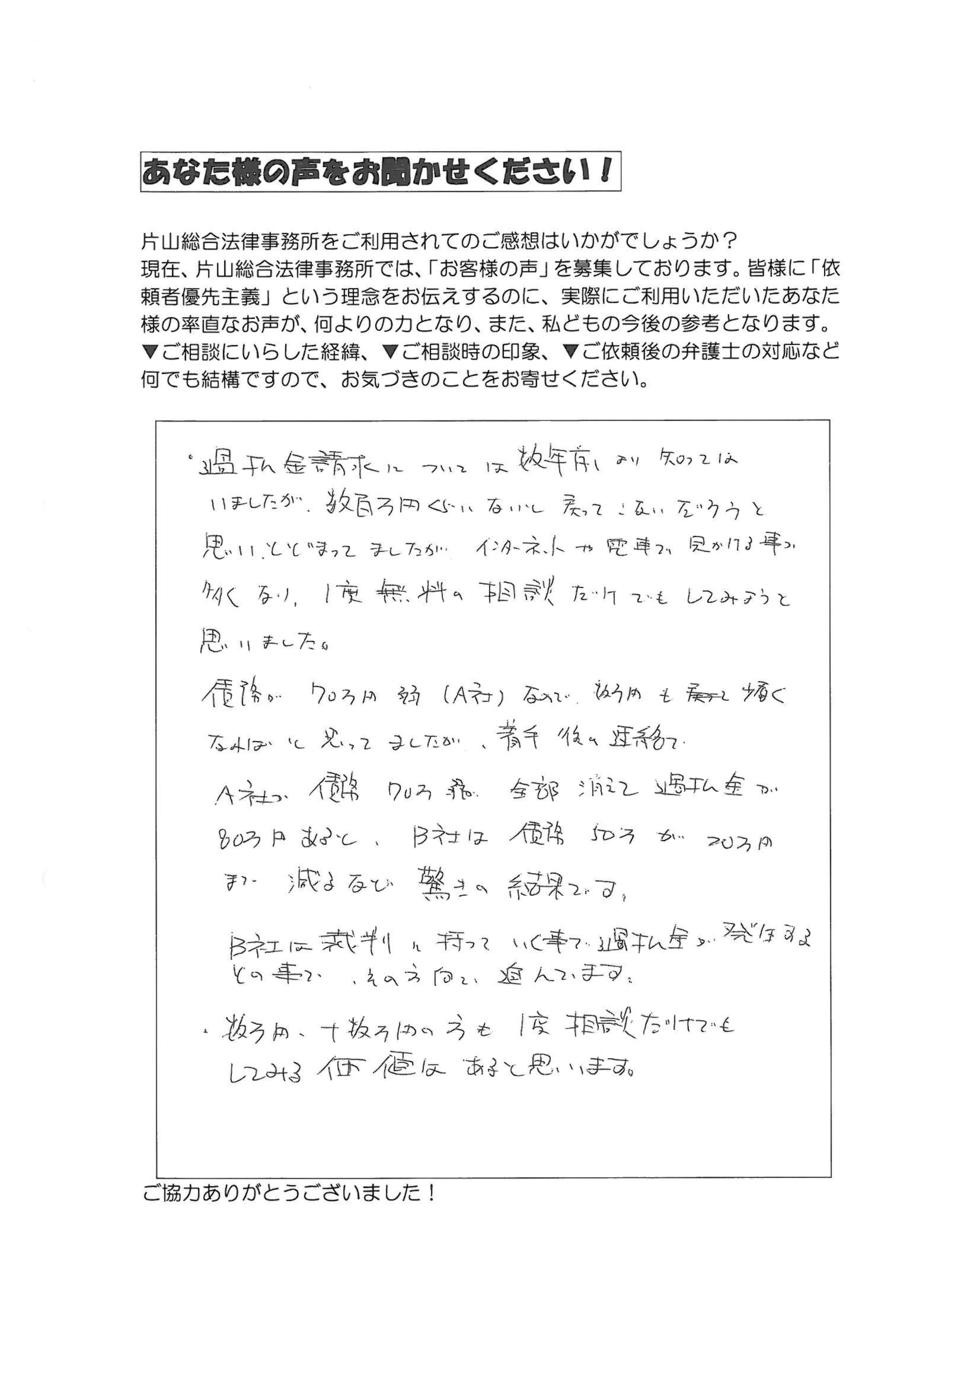 あなた様の声をお聞かせください！
片山総合法律事務所をご利用されてのご感想はいかがでしょうか？
現在、片山総合法律事務所では、「お客様の声」を募集しております。皆様に「依
頼者優先主義」という理念をお伝えするのに、実際にご利用いただいたあなた
様の率直なお声が、何よりの力となり、また、私どもの今後の参考となります。
▼ご相談にいらした経緯、▼ご相談時の印象、▼ご依頼後の弁護士の対応など
何でも結構ですので、お気づきのことをお寄せください。
・過払金請求については数年前より知っては
いましたが、数百万円くらいないと戻ってこないだろうと
思い、とどまってましたが インターネットや電車で見かける事が
多くなり、1度無料の相談だけでもしてみようと
思いました。
債務が70万円弱(A社)なので、数万円も戻って
なればと思ってましたが、着手後の連絡で
A社が債務70万 全部消えて過払金が
80万円あると、B社は債務50万が20万円
まで減るなど驚きの結果です。
B社は裁判に持っていく事で過払金が発生する
との事で、その方向で進んでいます。
・数万円、十数万円の方も1度相談だけでも
してみる価値はあると思います。
ご協力ありがとうございました！